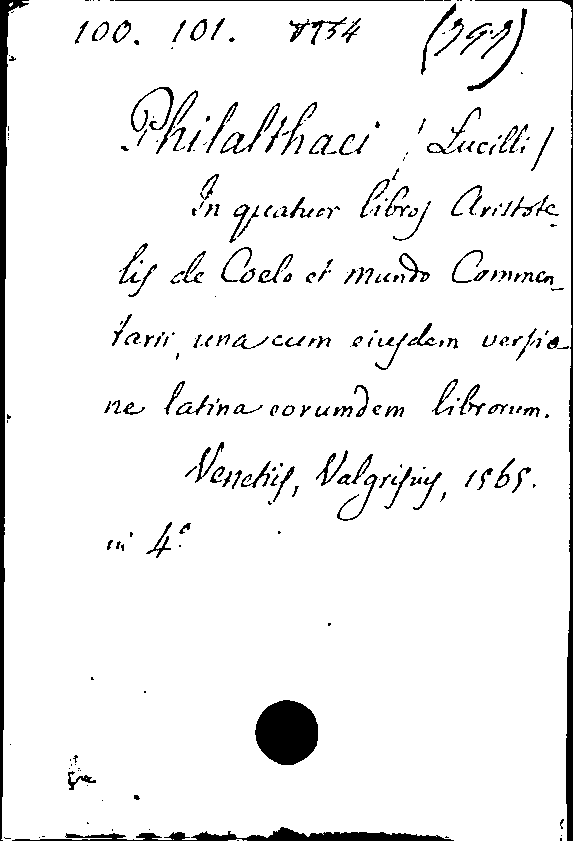 100. 101.
Philalthaei (Lucilli)
In quatuor libros Aristote-
lis de Coelo et mundo Commen-
tarii, una cum eiusdem versio
ne latina eorumdem librorum.
Venetiis, Valgrisius, 1565.
in 4°